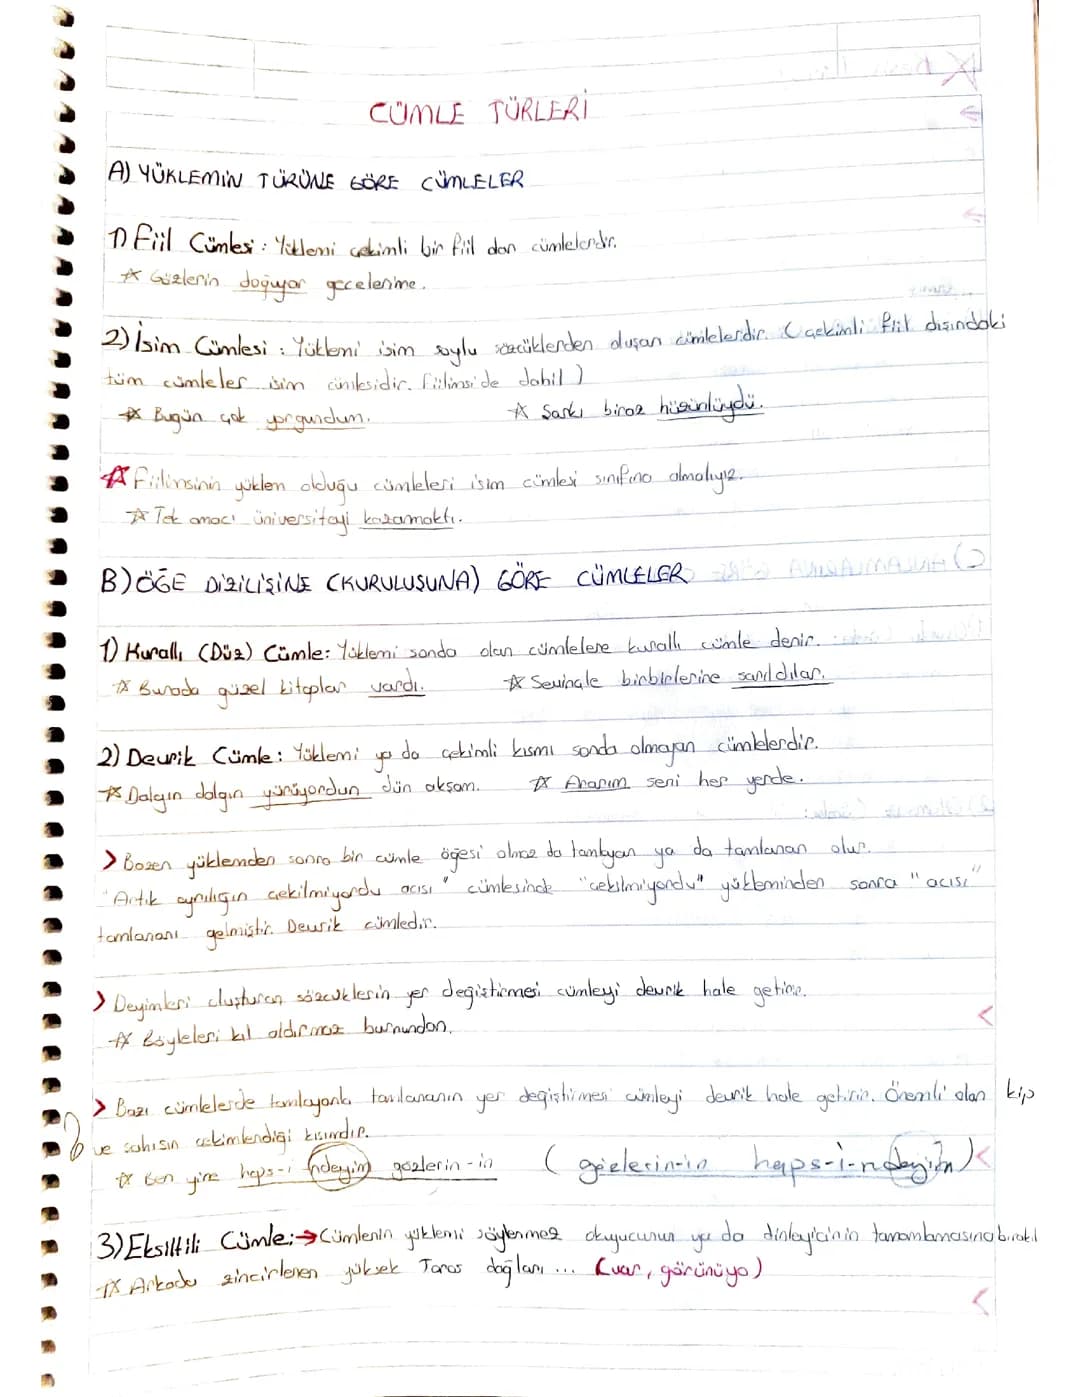 CÜMLE TÜRLERİ
A) YÜKLEMİN TÜRÜNE GÖRE CÜMLELER
1) Fiil Cümlesi : Yüklemi çekimli bir fiil olan cümlelerdir.
☆ Gözlerin doğuyor gecelerime.
2) İsim Cümlesi : Yüklemi isim soylu sözcüklerden oluşan cümlelerdir. ( çekimli fiil dışındaki
tüm cümleler isim cümlesidir. Fiilimsi de dahil )
☆ Bugün çok yorgundum. ☆ Şarkı biraz hüzünlüydü.
☆ Fiilimsinin yüklem olduğu cümleleri isim cümlesi sınıfına almalıyız.
☆ Tek amacı üniversiteyi kazanmaktı.
B) ÖĞE DİZİLİŞİNE (KURULUŞUNA) GÖRE CÜMLELER
1) Kurallı (Düz) Cümle: Yüklemi sonda olan cümlelere kurallı cümle denir.
☆ Burada güzel kitaplar vardı. ☆ Sevinçle birbirlerine sarıldılar.
2) Devrik Cümle : Yüklemi ya da çekimli kısmı sonda olmayan cümlelerdir.
☆ Dalgın dalgın yürüyordun dün akşam. ☆ Ararım seni her yerde.
> Bazen yüklemden sonra bir cümle öğesi olmaz da tamlayan ya da tamlanan olur.
"Artık ayrılığın çekilmiyordu acısı" cümlesinde "çekilmiyordu" yükleminden sonra "acısı"
tamlananı gelmiştir. Devrik cümledir.
> Deyimleri oluşturan sözcüklerin yer değiştirmesi cümleyi devrik hale getirir.
☆ Böyleleri kıl aldırmaz burnundan.
> Bazı cümlelerde tamlayanla tamlananın yer değiştirmesi cümleyi devrik hale getirir. Önemli olan kip
ve şahısın çekimlendiği kısımdır.
☆ Ben yine haps-i ndeyim gözlerin-in ( gözlerin-in haps-i-ndeyim )
3) Eksiltili Cümle: → Cümlenin yüklemi söylenmez okuyucunun ya da dinleyicinin tamamlamasına bırakıl
☆ Arkada zincirlenen yüksek Toros dağları ... (var, görünüyo)